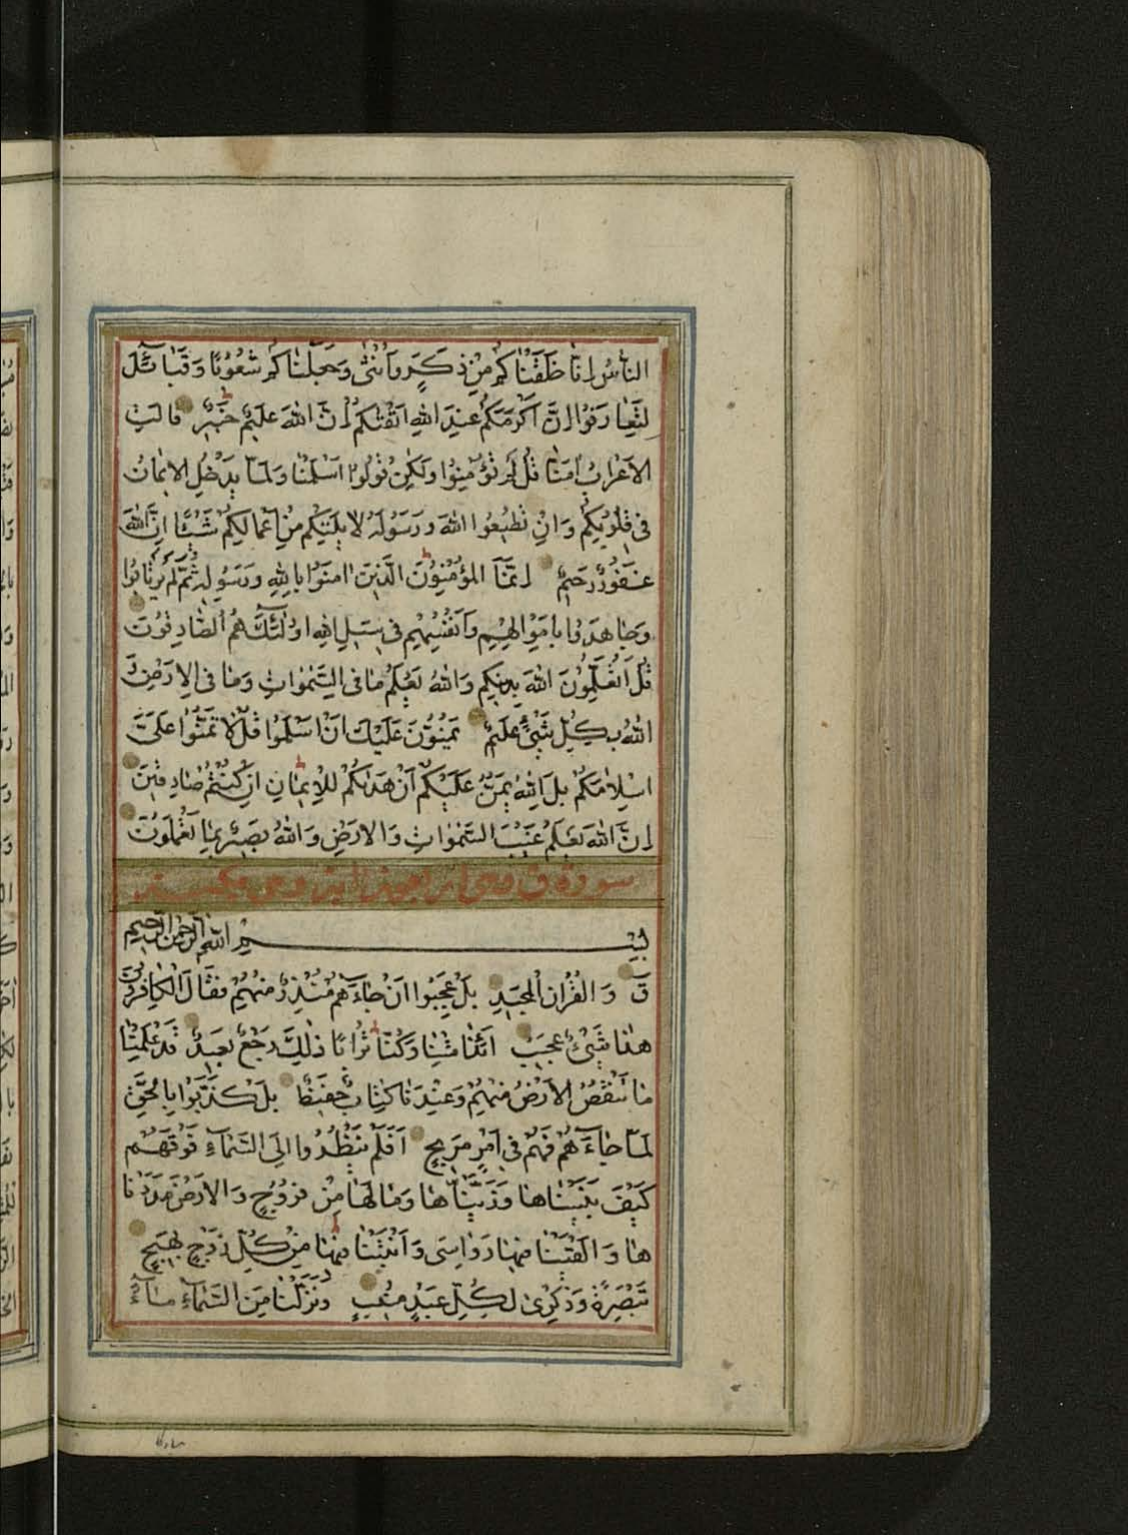 الناسُ اِنَّا خَلَقْنَاكُمْ مِنْ ذَكَرٍ وَاُنْثٰى وَجَعَلْنَاكُمْ شُعُوبًا وَقَبَائِلَ
لِتَعَارَفُوا اِنَّ اَكْرَمَكُمْ عِنْدَ اللهِ اَتْقٰىكُمْ اِنَّ اللهَ عَلِيمٌ خَبِيرٌ قَالَتِ
الاَعْرَابُ اٰمَنَّا قُلْ لَمْ تُؤْمِنُوا وَلٰكِنْ قُولُوا اَسْلَمْنَا وَلَمَّا يَدْخُلِ الاِيمَانُ
فِى قُلُوبِكُمْ وَاِنْ تُطِيعُوا اللهَ وَرَسُولَهُ لَا يَلِتْكُمْ مِنْ اَعْمَالِكُمْ شَيْئًا اِنَّ اللهَ
غَفُورٌ رَحِيمٌ اِنَّمَا المُؤْمِنُونَ الَّذِينَ اٰمَنُوا بِاللهِ وَرَسُولِهِ ثُمَّ لَمْ يَرْتَابُوا
وَجَاهَدُوا بِاَمْوَالِهِمْ وَاَنْفُسِهِمْ فِى سَبِيلِ اللهِ اُولٰئِكَ هُمُ الصَّادِقُونَ
قُلْ اَتُعَلِّمُونَ اللهَ بِدِينِكُمْ وَاللهُ يَعْلَمُ مَا فِى السَّمٰوَاتِ وَمَا فِى الاَرْضِ وَ
اللهُ بِكُلِّ شَىْءٍ عَلِيمٌ يَمُنُّونَ عَلَيْكَ اَنْ اَسْلَمُوا قُلْ لَا تَمُنُّوا عَلَىَّ
اِسْلَامَكُمْ بَلِ اللهُ يَمُنُّ عَلَيْكُمْ اَنْ هَدٰىكُمْ لِلْاِيمَانِ اِنْ كُنْتُمْ صَادِقِينَ
اِنَّ اللهَ يَعْلَمُ غَيْبَ السَّمٰوَاتِ وَالاَرْضِ وَاللهُ بَصِيرٌ بِمَا تَعْمَلُونَ
سورة ق وهى اربعون اية وهى مكية
بِسْمِ اللهِ الرَّحْمٰنِ الرَّحِيمِ
قٓ وَالْقُرْاٰنِ الْمَجِيدِ بَلْ عَجِبُوا اَنْ جَاءَهُمْ مُنْذِرٌ مِنْهُمْ فَقَالَ الْكَافِرُونَ
هٰذَا شَىْءٌ عَجِيبٌ اَئِذَا مِتْنَا وَكُنَّا تُرَابًا ذٰلِكَ رَجْعٌ بَعِيدٌ قَدْ عَلِمْنَا
مَا تَنْقُصُ الاَرْضُ مِنْهُمْ وَعِنْدَنَا كِتَابٌ حَفِيظٌ بَلْ كَذَّبُوا بِالْحَقِّ
لَمَّا جَاءَهُمْ فَهُمْ فِى اَمْرٍ مَرِيجٍ اَفَلَمْ يَنْظُرُوا اِلَى السَّمَاءِ فَوْقَهُمْ
كَيْفَ بَنَيْنَاهَا وَزَيَّنَّاهَا وَمَا لَهَا مِنْ فُرُوجٍ وَالاَرْضَ مَدَدْنَا
هَا وَاَلْقَيْنَا فِيهَا رَوَاسِىَ وَاَنْبَتْنَا فِيهَا مِنْ كُلِّ زَوْجٍ بَهِيجٍ
تَبْصِرَةً وَذِكْرٰى لِكُلِّ عَبْدٍ مُنِيبٍ وَنَزَّلْنَا مِنَ السَّمَاءِ مَاءً